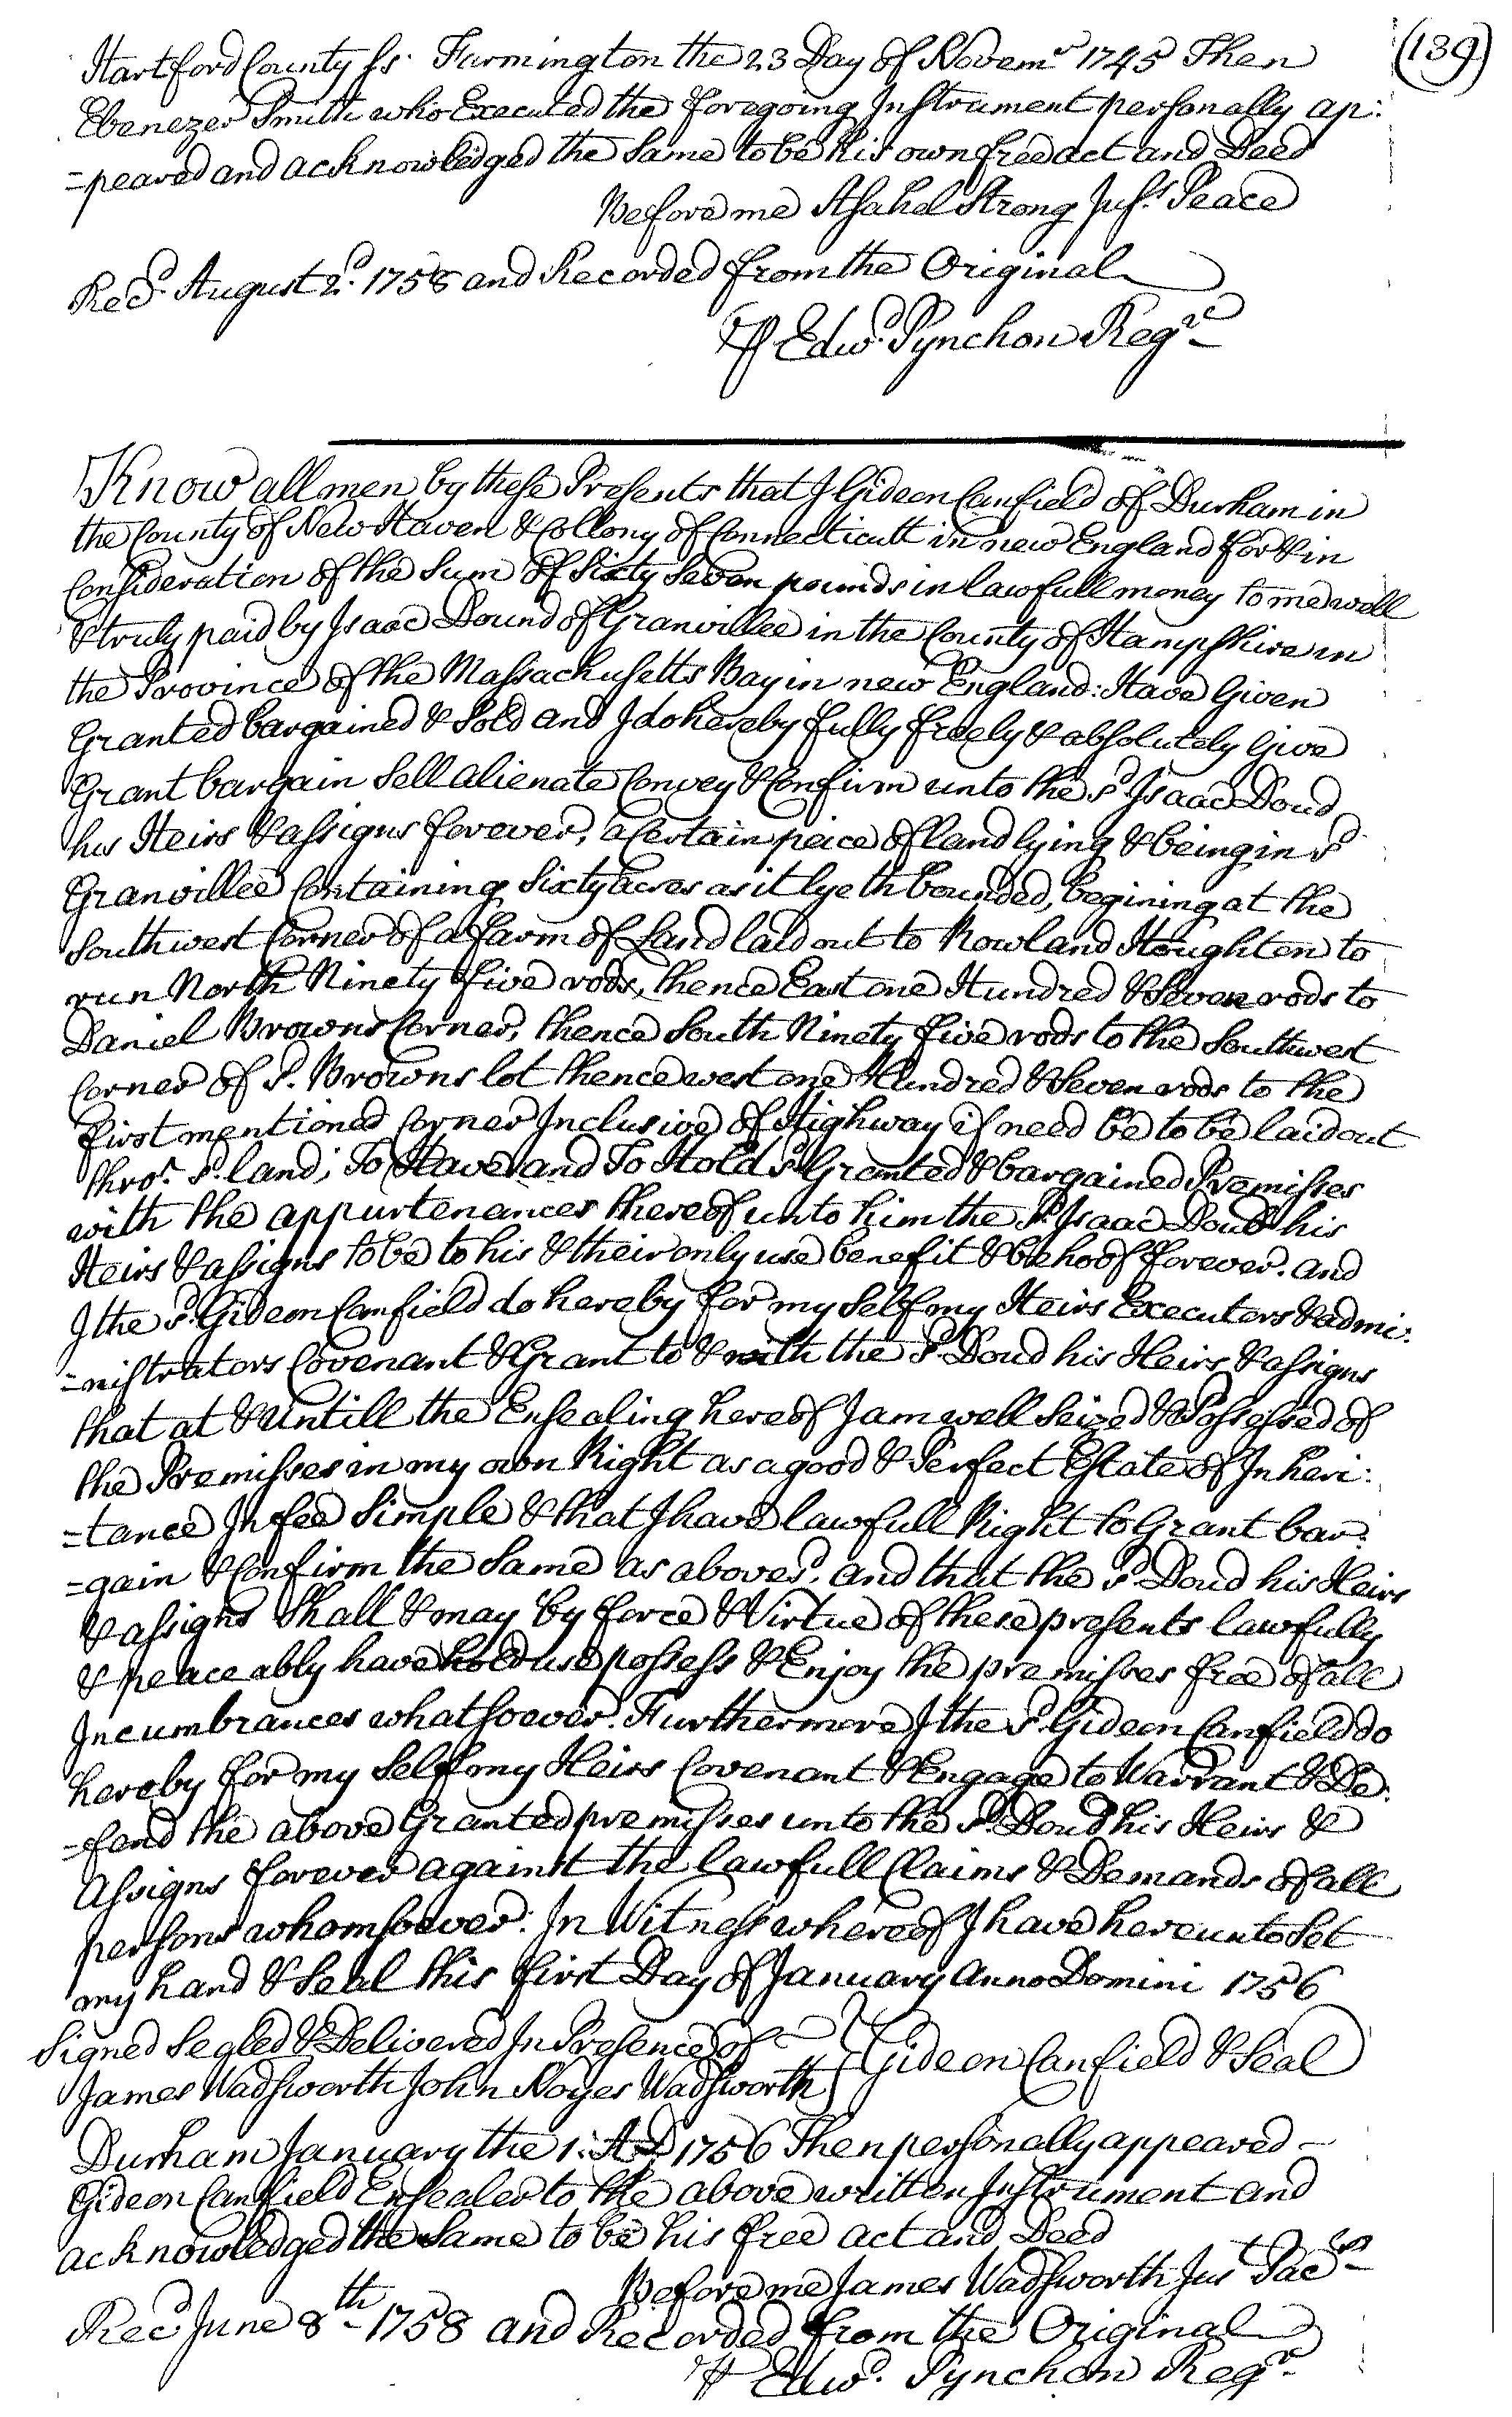 (139)
Hartford County ss. Farmington the 23 Day of Novemr 1745 Then
Ebenezer Smith who Executed the foregoing Instrument personally ap:
=peared and acknowledged the Same to be his own free act and Deed
Before me Asahel Strong Just. Peace
Recd. August 2d. 1758 and Recorded from the Original
⅌ Edwd. Pynchon Regr.
Know all men by these Presents that I Gideon Canfield of Durham in
the County of New Haven & Collony of Connecticutt in new England for & in
Consideration of the Sum of Sixty Seven pounds in lawfull money to me well
& truly paid by Isaac Doud of Granvillee in the County of Hampshire in
the Province of the Massachusetts Bay in new England: Have Given
Granted bargained & Sold and I do hereby fully freely & absolutely Give
Grant bargain Sell alienate Convey & Confirm unto the sd. Isaac Doud
his Heirs & assigns forever, a Certain peice of land lying & being in sd
Granvillee Containing Sixty acres as it lyeth bounded, begining at the
Southwest Corner of a farm of Land laid out to Rowland Houghten to
run North Ninety five rods, thence East one Hundred & Seven rods to
Daniel Browns Corner, thence South Ninety five rods to the Southwest
Corner of sd. Browns lot thence west one Hundred & Seven rods to the
first mentioned Corner Inclusive of Highway if need be to be laid out
thro'. sd. land; To Have and To Hold sd. Granted & bargained Premisses
with the appurtenances thereof unto him the sd. Isaac Doud his
Heirs & assigns to be to his & their only use benefit & behoof forever. and
I the sd. Gideon Canfield do hereby for my Self my Heirs Executors & admi:
=nistrators Covenant & Grant to & with the sd. Doud his Heirs & assigns
that at & Untill the Ensealing hereof I am well Seized & Possessed of
the Premisses in my own Right as a good & Perfect Estate of Inheri:
=tance In fee Simple & that I have lawfull Right to Grant bar:
=gain & Confirm the Same as abovesd. and that the sd. Doud his Heirs
& assigns Shall & may by force & Virtue of these presents lawfully
& peaceably have hold use possess & Enjoy the premisses free of all
Incumbrances whatsoever. Furthermore I the sd. Gideon Canfield do
hereby for my Self my Heirs Covenant & Engage to Warrant & De:
=fend the above Granted premisses unto the sd. Doud his Heirs &
Assigns forever against the lawfull Claims & Demands of all
persons whomsoever. In Witness whereof I have hereunto Set
my hand & Seal this first Day of January Anno Domini 1756
Signed Sealed & Delivered In Presence of
James Wadsworth John Noyes Wadsworth } Gideon Canfield & Seal
Durham January the 1: AD 1756 Then personally appeared
Gideon Canfield Ensealer to the above written Instrument and
acknowledged the Same to be his free act and Deed
Before me James Wadsworth Just Pacs
Recd June 8th 1758 and Recorded from the Original
⅌ Edwd. Pynchon Regr.